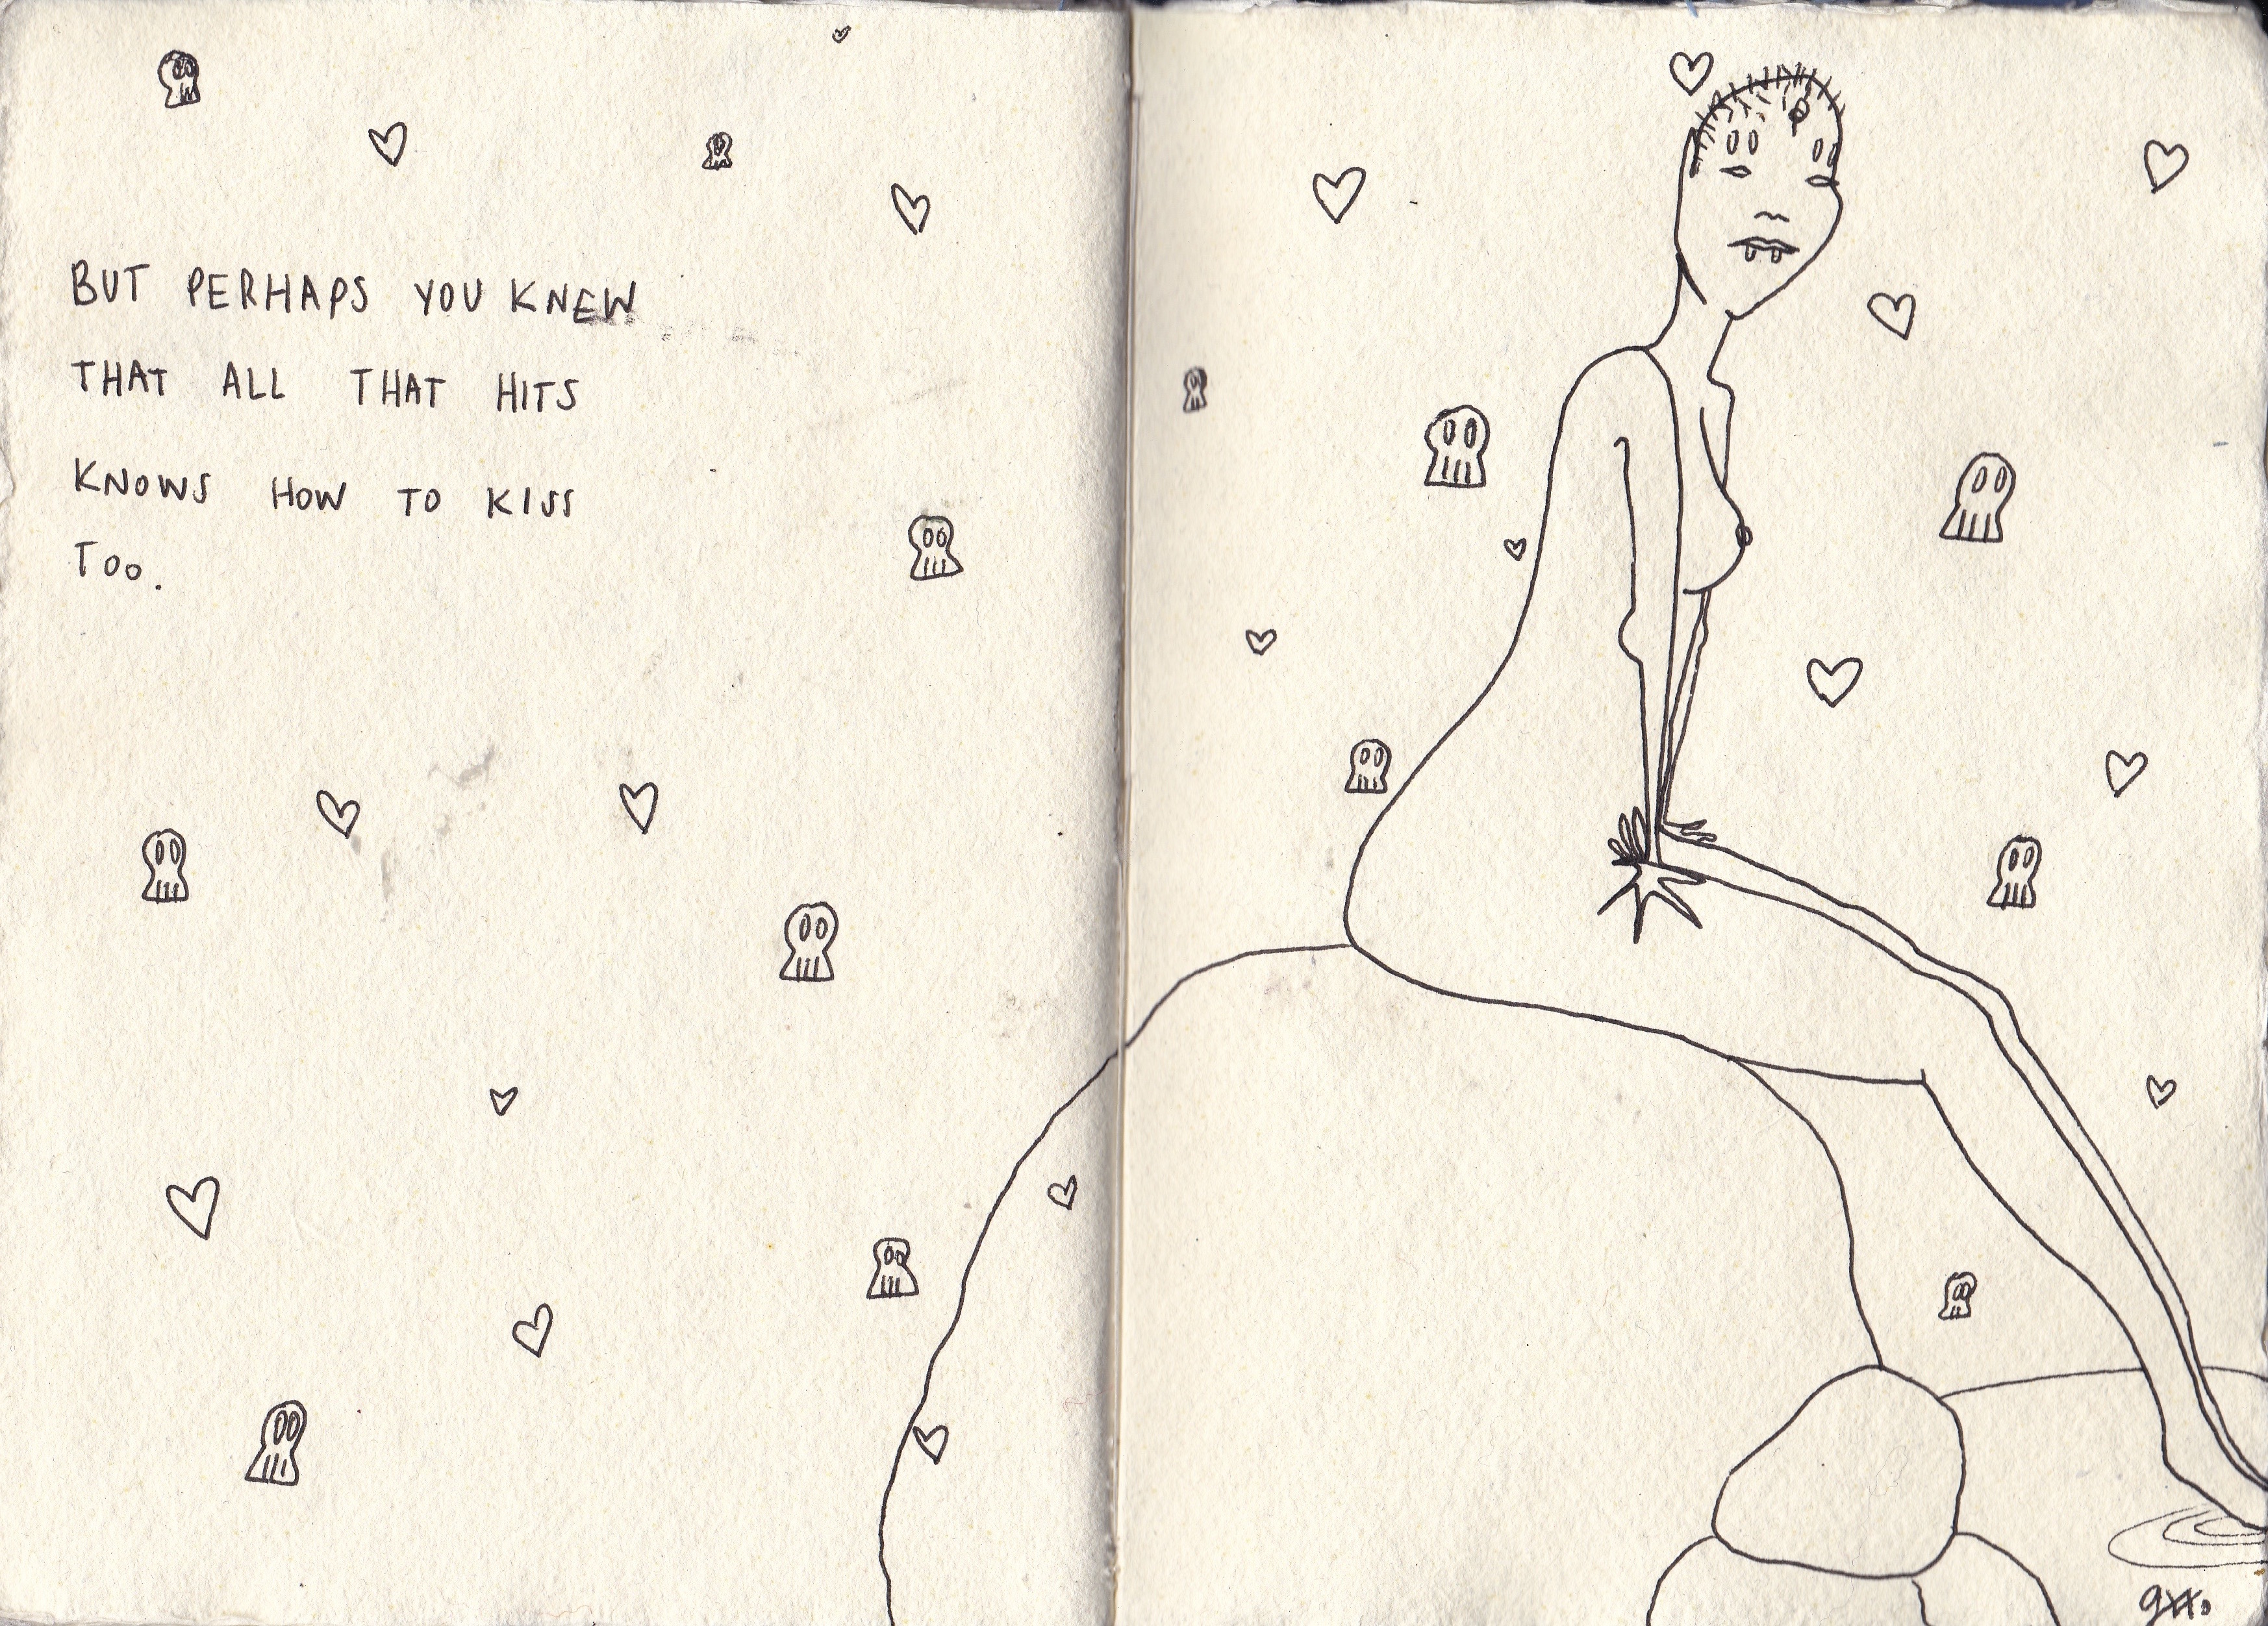 BUT PERHAPS YOU KNEW
THAT ALL THAT HITS
KNOWS HOW TO KISS
TOO.
gxx.